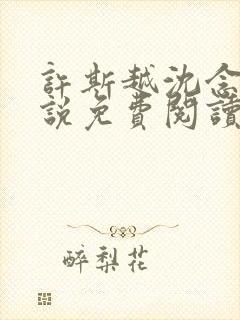 許斯越沈念
說免費閱讀
醉梨花